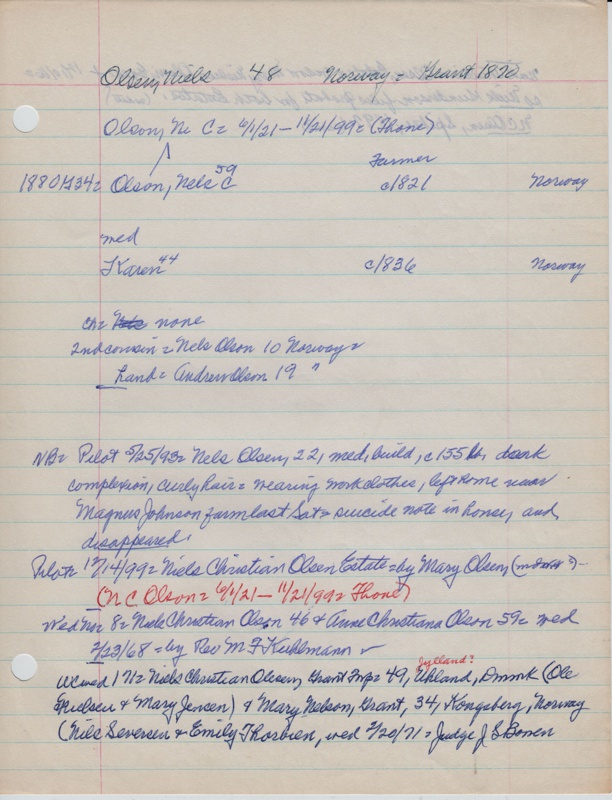 Olsen, Niels 48 Norway = Grant 1870
Olson, N C = 6/1/21 – 11/21/99 = (Thone)
59
Farmer
1880/234 = Olson, Nels C c/821 Norway
med
Karen 44 c/836 Norway
ch = none
2nd cousin = Nels Olson 10 Norway =
hand = Andrew Olson 19 "
NB = Pilot 5/25/93 = Nels Olsen, 22, med, build, c 155 lbs, dark
complexion, curly hair = wearing work clothes, left home near
Magnus Johnson farm last Sat = suicide note in house, and
disappeared.
Pilot = 12/14/99 = Niels Christian Olsen Estate = by Mary Olsen,
(N C Olson = 6/1/21 – 11/21/99 = Thone)
Wed No 8 = Niels Christian Olson 46 & Anne Christiana Olson 59 = wed
2/23/68 = by Rev M F Kuhlmann
Jylland?
wc wed 171 = Niels Christian Olsen, Grant Twp = 49, Uhland, Dnmk (Ole
Nielsen & Mary Jensen) & Mary Nelson, Grant, 34, Kongsberg, Norway
(Nils Seversen & Emily Thorbien, wed 2/20/71 = Judge J S Bowen